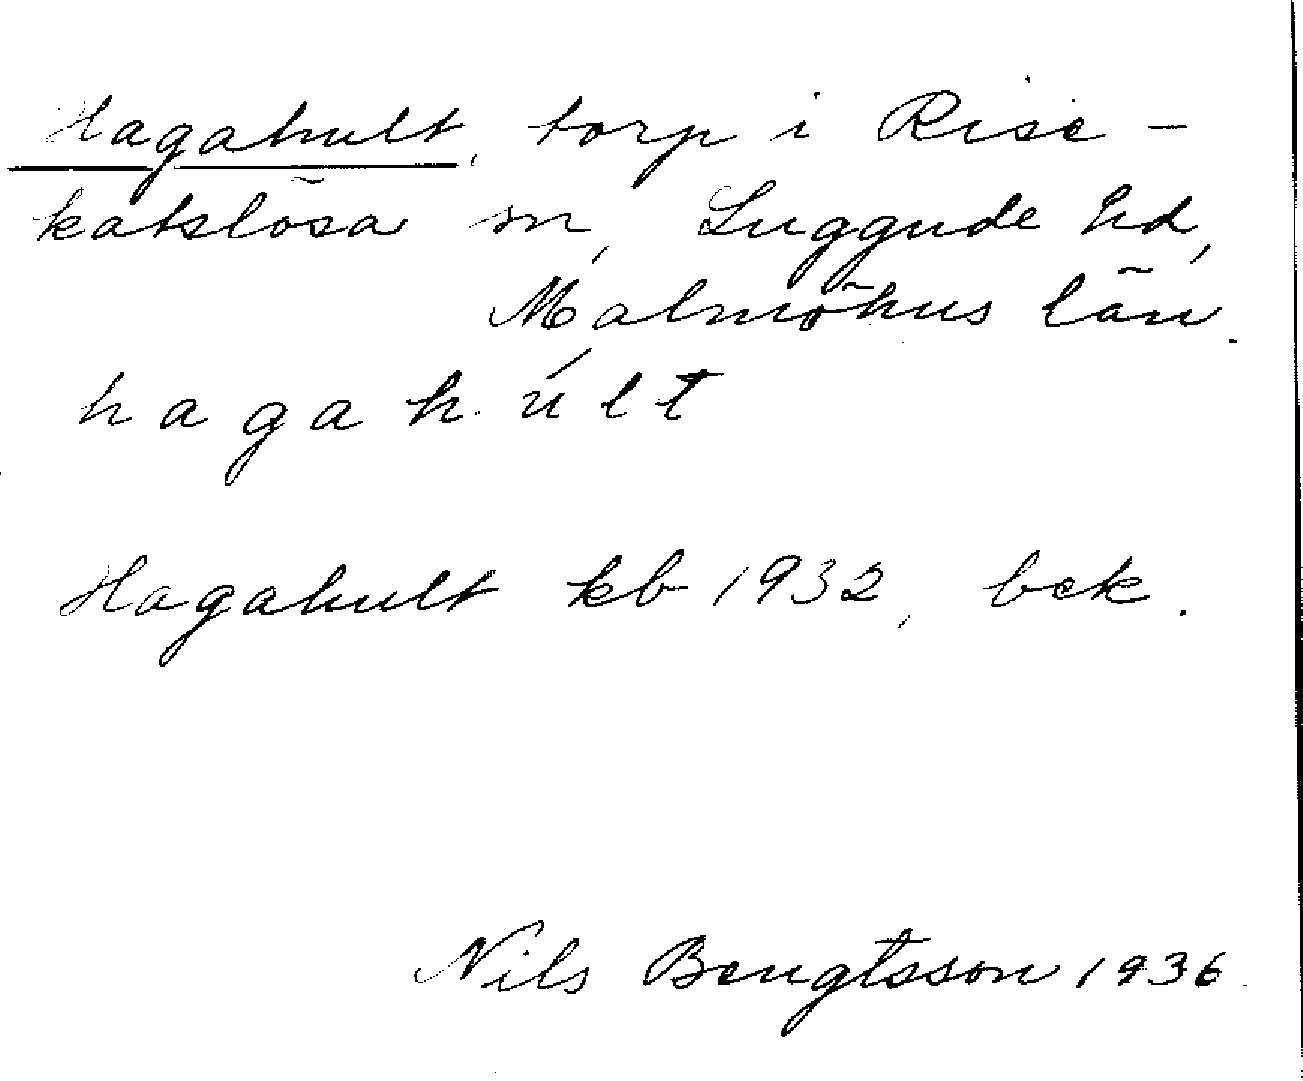 Hagahult, torp i Rise-
katslösa sn, Luggude hd,
Malmöhus län.
hagahúlt
Hagahult kb 1932, bek.
Nils Bengtsson 1936.